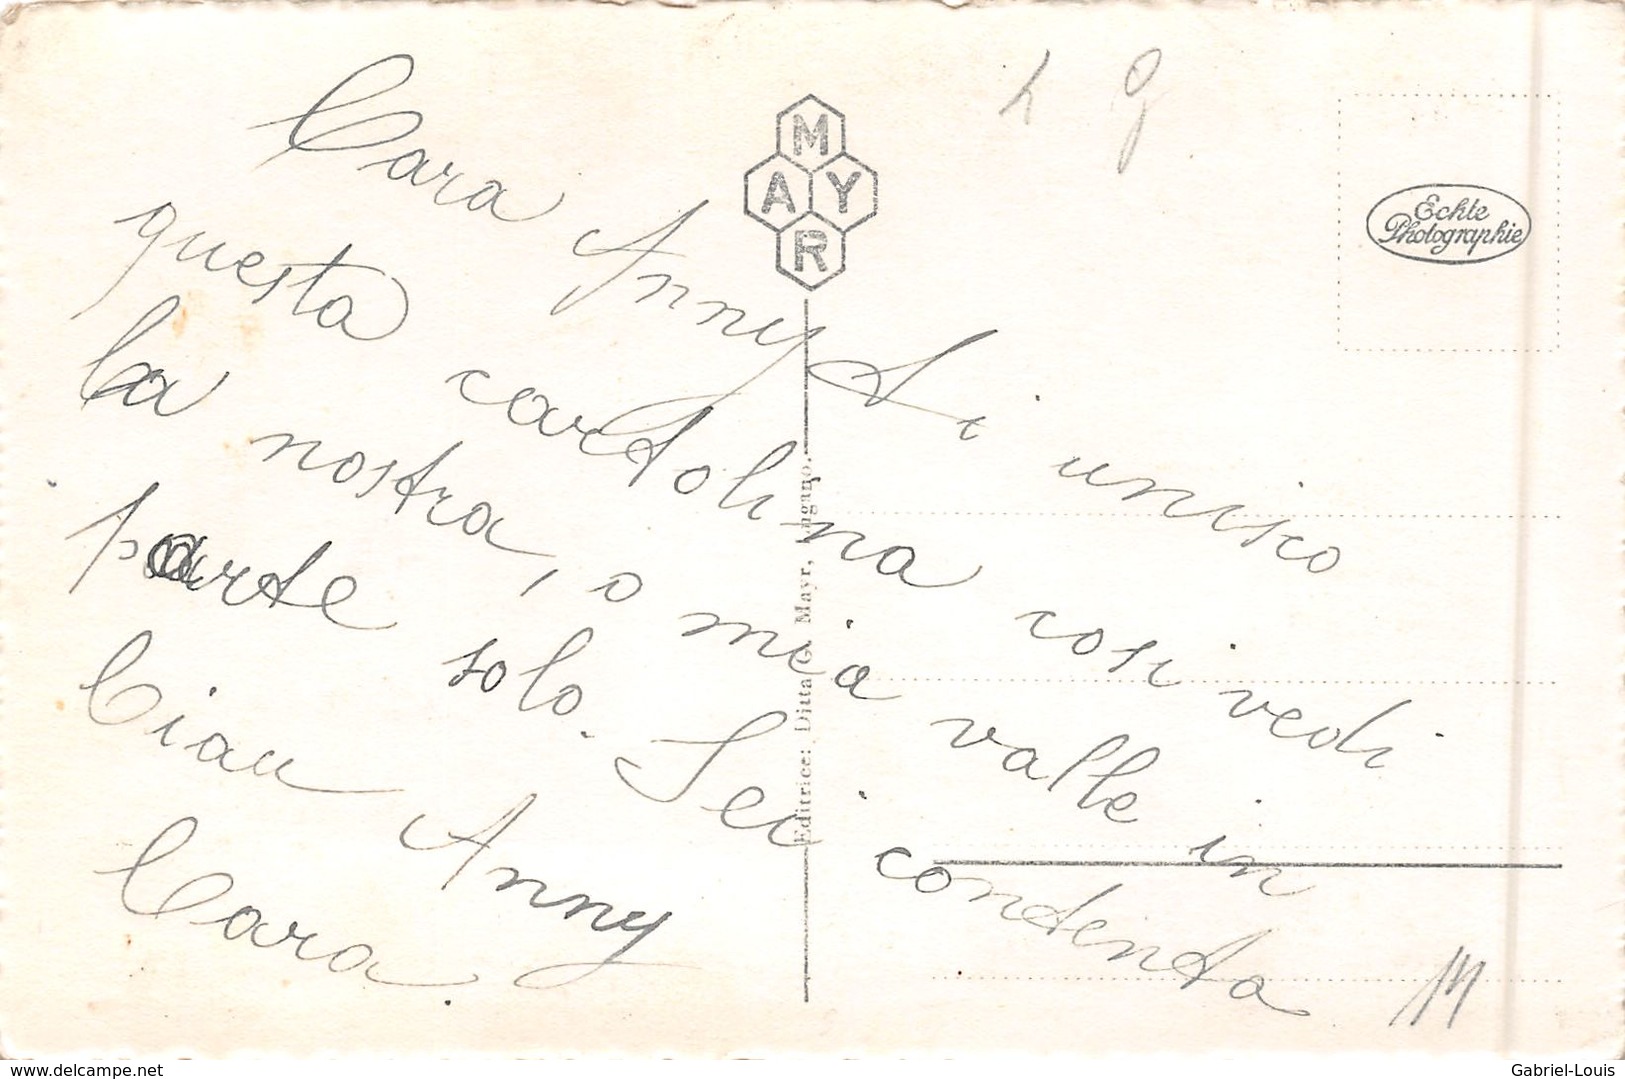 Cara Anny Ti unisco
questa cartolina cosi vedi
la nostra, o mia valle in
parte solo. Sei contenta
Ciau Anny
Cara.
M
A Y
R
Editrice: Ditta G. Mayr, Lugano.
Echte
Photographie
delcampe.net
Gabriel-Louis